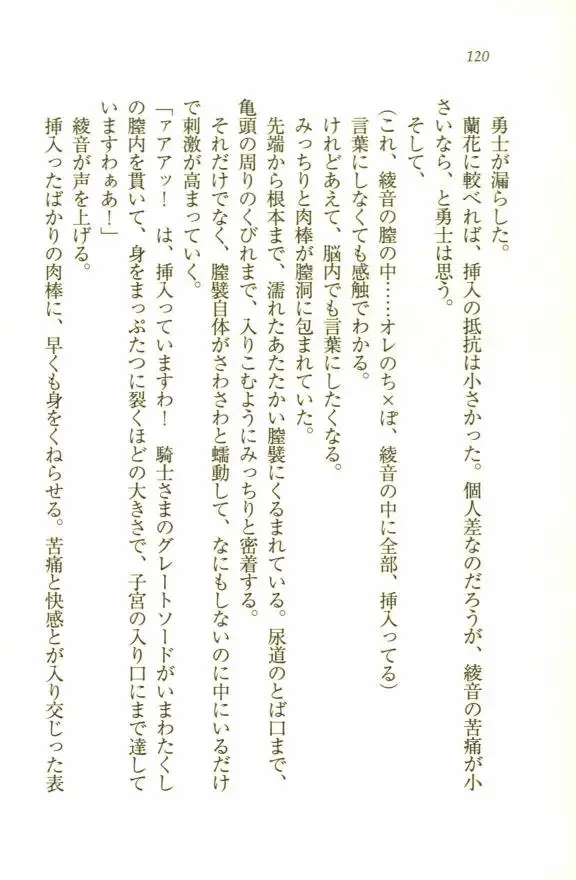 120
勇士が漏らした。
蘭花に較べれば、挿入の抵抗は小さかった。個人差なのだろうが、綾音の苦痛が小
さいなら、と勇士は思う。
そして、
(これ、綾音の膣の中……オレのち×ぽ、綾音の中に全部、挿入ってる)
言葉にしなくても感触でわかる。
けれどあえて、脳内でも言葉にしたくなる。
みっちりと肉棒が膣洞に包まれていた。
先端から根本まで、濡れたあたたかい膣襞にくるまれている。尿道のとば口まで、
亀頭の周りのくびれまで、入りこむようにみっちりと密着する。
それだけでなく、膣襞自体がさわさわと蠕動して、なにもしないのに中にいるだけ
で刺激が高まっていく。
「ァアアッ！　は、挿入っていますわ！　騎士さまのグレートソードがいまわたくし
の膣内を貫いて、身をまっぷたつに裂くほどの大きさで、子宮の入り口にまで達して
いますわぁあ！」
綾音が声を上げる。
挿入ったばかりの肉棒に、早くも身をくねらせる。苦痛と快感とが入り交じった表